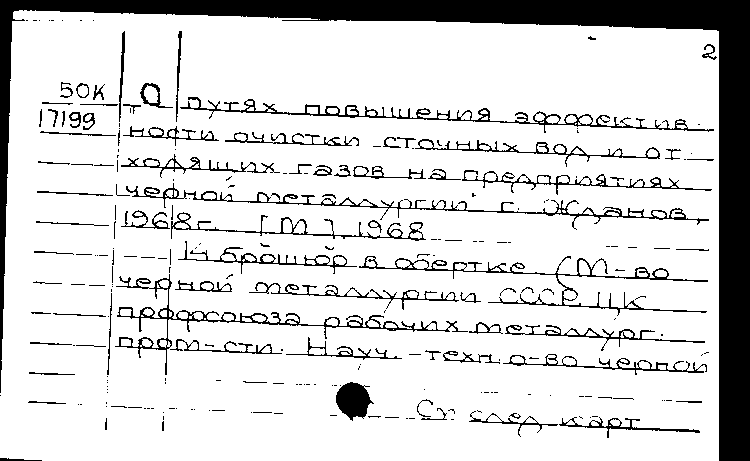 2
50К О путях повышения эффектив-
17199 "ности очистки сточных вод и от-
ходящих газов на предприятиях
черной металлургии" г. Жданов,
1968г. [М]. 1968
14 брошюр в обертке (М-во
черной металлургии СССР. ЦК
профсоюза рабочих металлург.
пром-сти. Науч.-техн. о-во черной
См след карт